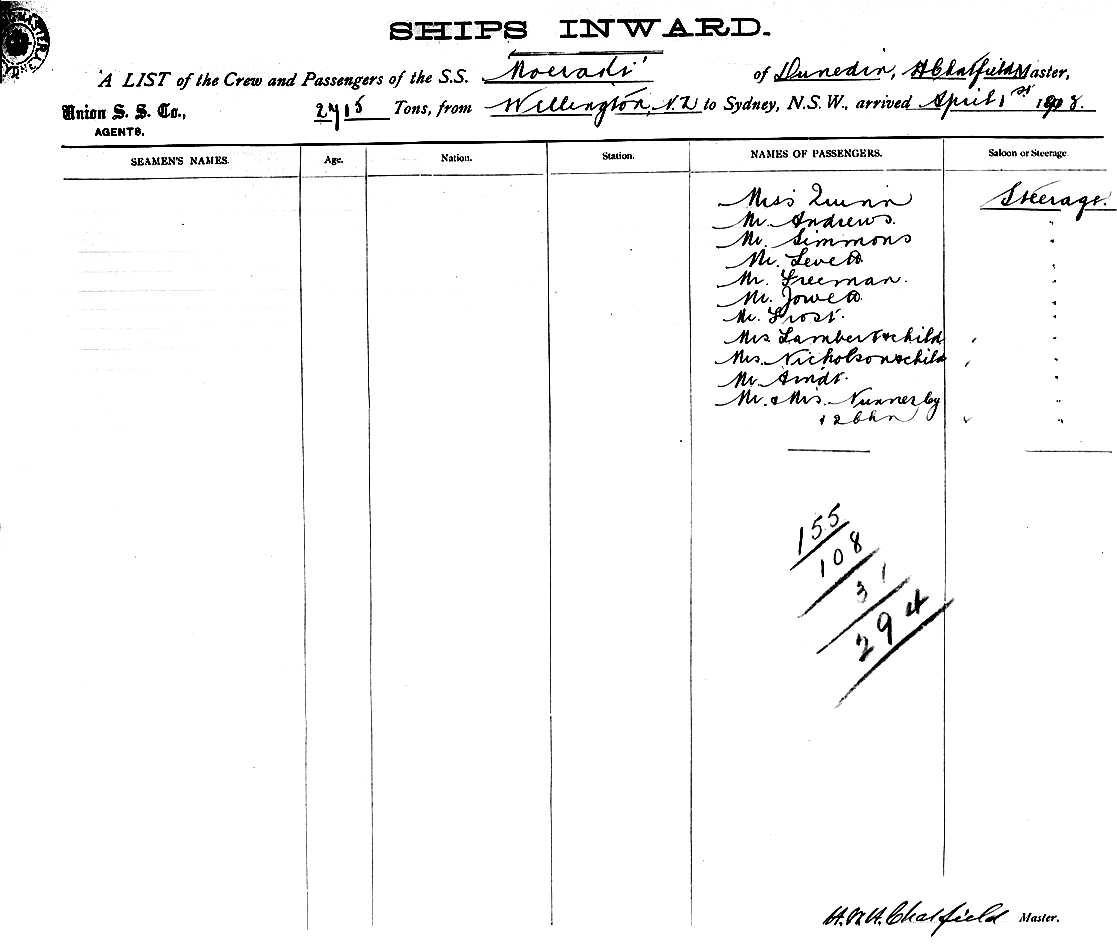 SHIPS INWARD.
A LIST of the Crew and Passengers of the S.S. Moeraki of Dunedin, H Chatfield Master,
Union S. S. Co., 2715 Tons, from Wellington, N.Z to Sydney, N.S.W., arrived April 1st 1908.
AGENTS.
SEAMEN'S NAMES. Age. Nation. Station. NAMES OF PASSENGERS. Saloon or Steerage
Miss Quinn Steerage.
Mr. Andrews. "
Mr. Simmons "
Mr. Levett "
Mr. Freeman. "
Mr. Jowett "
Mr. Frost. "
Mrs Lambert & child "
Mrs. Nicholson & child "
Mr. Arndt. "
Mr. & Mrs. Nunnerley "
+ 2 chn "
155
108
31
294
Chatfield Master.